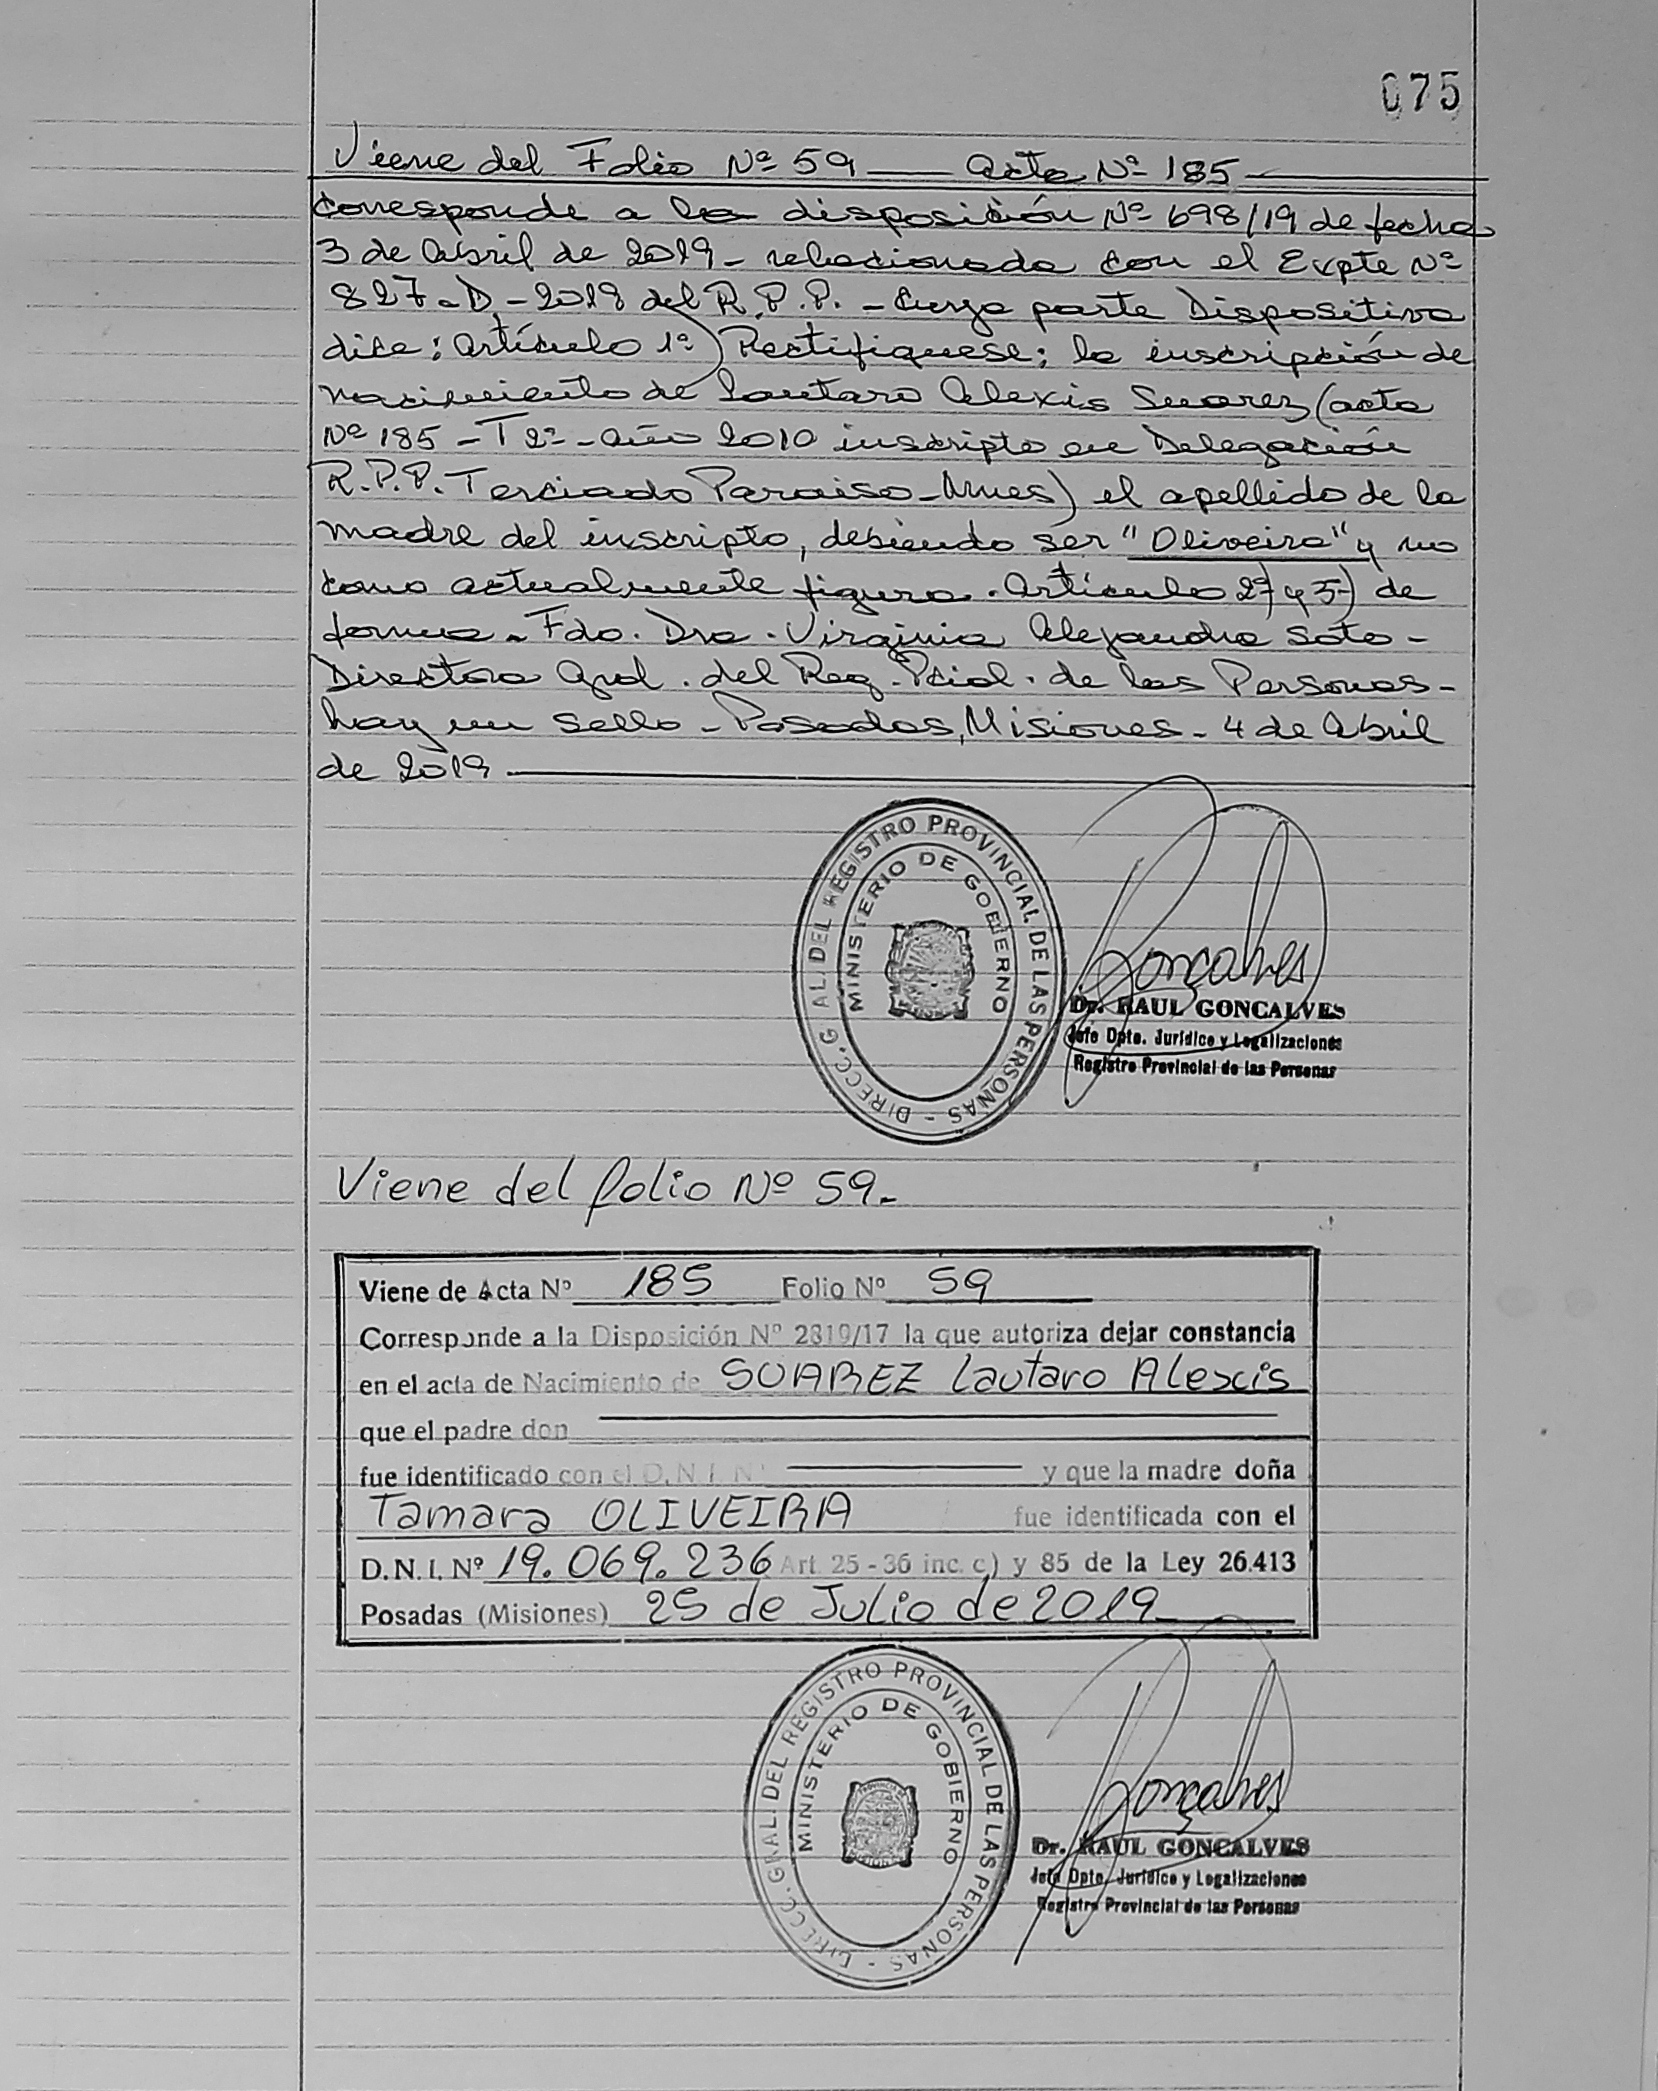 075
Viene del Folio Nº 59 —— acta Nº 185 ——
Corresponde a la disposición Nº 698/19 de fecha
3 de abril de 2019 - relacionada con el Expte Nº
827-D-2018 del R.P.P. - Cuya parte Dispositiva
dice: artículo 1º) Rectifiquese; la inscripción de
nacimiento de Lautaro Alexis Suarez (acta
Nº 185 - T 2º - año 2010 inscripto en Delegación
R.P.P. Terciado Paraiso - Mnes) el apellido de la
madre del inscripto, debiendo ser "Oliveira" y no
como actualmente figura. Artículo 2º) y 3º) de
forma - Fdo. Dra. Virginia Alejandra Soto -
Directora Gral. del Reg. Pcial. de las Personas -
hay un sello - Posadas, Misiones - 4 de abril
de 2019 ——
DIRECC. G AL. DEL REGISTRO PROVINCIAL DE LAS PERSONAS -
MINISTERIO DE GOBIERNO
Gonçalves
Dr. RAUL GONCALVES
Jefe Dpto. Jurídico y Legalizaciones
Registro Provincial de las Personas
Viene del folio Nº 59.-
Viene de Acta Nº 185 Folio Nº 59
Corresponde a la Disposición Nº 2319/17 la que autoriza dejar constancia
en el acta de Nacimiento de SUAREZ Lautaro Alexis
que el padre don ——
fue identificado con el D.N.I. Nº —— y que la madre doña
Tamara OLIVEIRA fue identificada con el
D.N.I. Nº 19.069.236 Art. 25 - 36 inc. c) y 85 de la Ley 26.413
Posadas (Misiones) 25 de Julio de 2019 ——
DIRECC. GRAL. DEL REGISTRO PROVINCIAL DE LAS PERSONAS -
MINISTERIO DE GOBIERNO
Gonçalves
Dr. RAUL GONCALVES
Jefe Dpto. Jurídico y Legalizaciones
Registro Provincial de las Personas